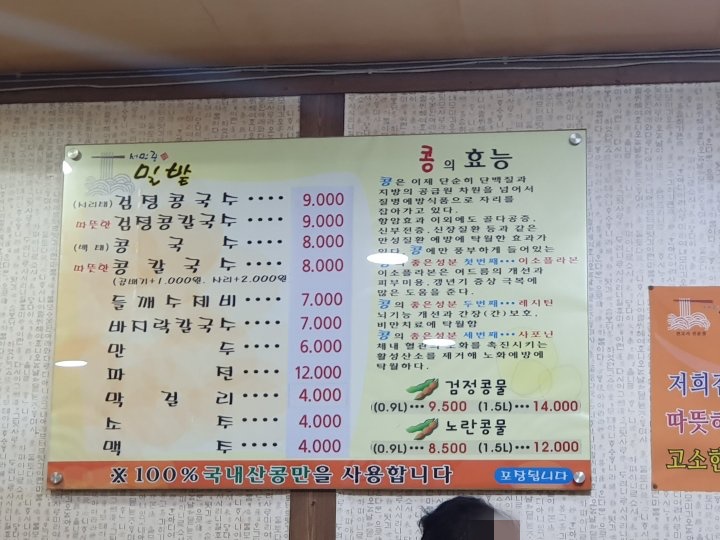 서민족
밀밭
(서리태)검정콩국수···· 9.000
따뜻한검정콩칼국수···· 9.000
(백태)콩국수···· 8.000
따뜻한콩칼국수···· 8.000
(곱빼기+1.000원. 사리+2.000원)
들깨수제비···· 7.000
바지락칼국수···· 7.000
만두···· 6.000
파전···· 12.000
막걸리···· 4.000
소주···· 4.000
맥주···· 4.000
콩의 효능
콩은 이제 단순히 단백질과
지방의 공급원 차원을 넘어서
질병예방식품으로 자리를
잡아가고 있다.
항암효과 이외에도 골다공증,
신부전증, 신장질환 등과 같은
만성질환 예방에 탁월한 효과가
있다. 콩에만 풍부하게 들어있는
콩의 좋은성분 첫번째···이소플라본
이소플라본은 여드름의 개선과
피부미용, 갱년기 증상 극복에
많은 도움을 준다.
콩의 좋은성분 두번째···레시틴
뇌기능 개선과 간장(간)보호,
비만치료에 탁월함
콩의 좋은성분 세번째···사포닌
체내 혈관의 노화를 촉진시키는
활성산소를 제거해 노화예방에
탁월하다.
검정콩물
(0.9L)··· 9.500 (1.5L)··· 14.000
노란콩물
(0.9L)··· 8.500 (1.5L)··· 12.000
※ 100%국내산콩만을 사용합니다
포장됩니다
저희
따뜻하
고소한